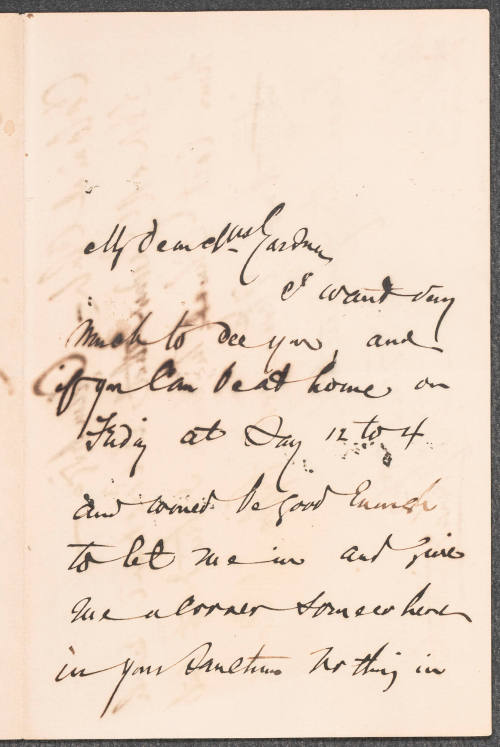 My dear Mrs. Gardner
I want very
much to see you, and
if you can be at home on
Friday at say 12 to 4
and would be good Enough
to let me in and give
me a corner somewhere
in your Sanctum nothing in